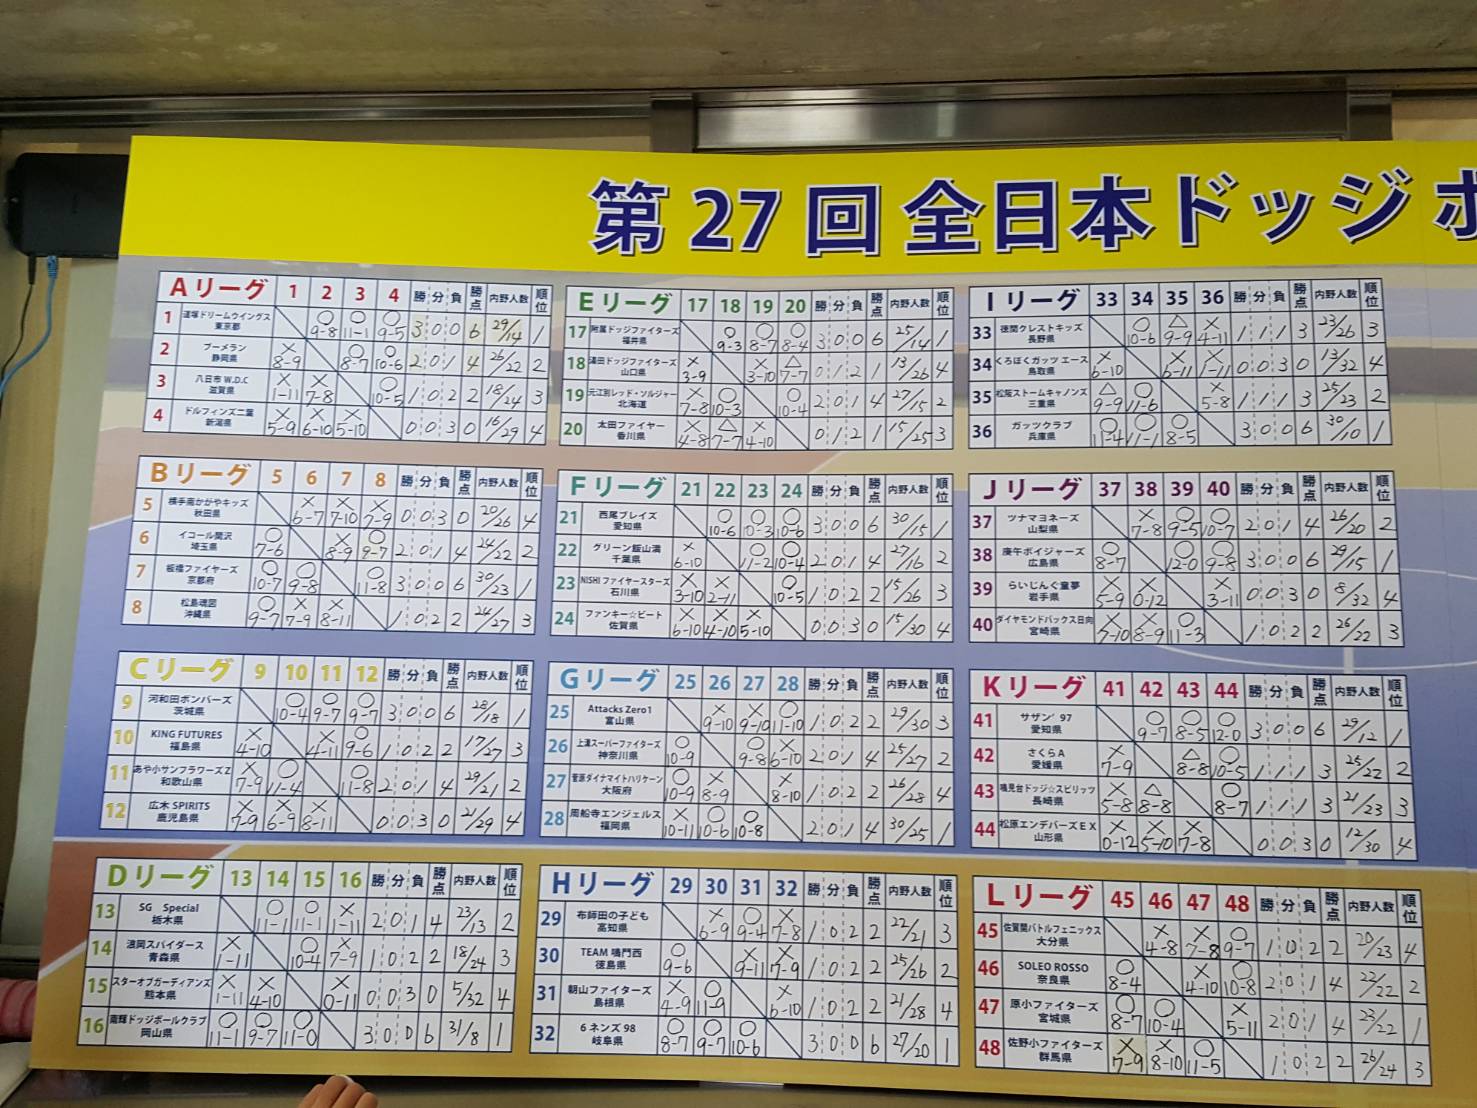 第27回全日本ドッジボ
Aリーグ 1 2 3 4 勝 分 負 勝点 内野人数 順位
1 道塚ドリームウイングス 東京都 ○9-8 ○11-1 ○9-5 3 0 0 6 29/14 1
2 ブーメラン 静岡県 ×8-9 ○8-7 ○10-6 2 0 1 4 26/22 2
3 八日市 W.D.C 滋賀県 ×1-11 ×7-8 ○10-5 1 0 2 2 18/24 3
4 ドルフィンズ二葉 新潟県 ×5-9 ×6-10 ×5-10 0 0 3 0 16/29 4
Bリーグ 5 6 7 8 勝 分 負 勝点 内野人数 順位
5 横手南かがやキッズ 秋田県 ×6-7 ×7-10 ×7-9 0 0 3 0 20/26 4
6 イコール関沢 埼玉県 ○7-6 ×8-9 ○9-7 2 0 1 4 24/22 2
7 板橋ファイヤーズ 京都府 ○10-7 ○9-8 ○11-8 3 0 0 6 30/23 1
8 松島魂図 沖縄県 ○9-7 ×7-9 ×8-11 1 0 2 2 24/27 3
Cリーグ 9 10 11 12 勝 分 負 勝点 内野人数 順位
9 河和田ボンバーズ 茨城県 ○10-4 ○9-7 ○9-7 3 0 0 6 28/18 1
10 KING FUTURES 福島県 ×4-10 ×4-11 ○9-6 1 0 2 2 17/27 3
11 あや小サンフラワーズZ 和歌山県 ×7-9 ○11-4 ○11-8 2 0 1 4 29/21 2
12 広木 SPIRITS 鹿児島県 ×7-9 ×6-9 ×8-11 0 0 3 0 21/29 4
Dリーグ 13 14 15 16 勝 分 負 勝点 内野人数 順位
13 SG Special 栃木県 ○11-1 ○11-1 ×1-11 2 0 1 4 23/13 2
14 浪岡スパイダース 青森県 ×1-11 ○10-4 ×7-9 1 0 2 2 18/24 3
15 スターオブガーディアンズ 熊本県 ×1-11 ×4-10 ×0-11 0 0 3 0 5/32 4
16 南輝ドッジボールクラブ 岡山県 ○11-1 ○9-7 ○11-0 3 0 0 6 31/8 1
Eリーグ 17 18 19 20 勝 分 負 勝点 内野人数 順位
17 附属ドッジファイターズ 福井県 ○9-3 ○8-7 ○8-4 3 0 0 6 25/14 1
18 ドッジファイターズ 山口県 ×3-9 ×3-10 △7-7 0 1 2 1 13/26 4
19 元江別レッド・ソルジャー 北海道 ×7-8 ○10-3 ○10-4 2 0 1 4 27/15 2
20 太田ファイヤー 香川県 ×4-8 △7-7 ×4-10 0 1 2 1 15/25 3
Fリーグ 21 22 23 24 勝 分 負 勝点 内野人数 順位
21 西尾ブレイズ 愛知県 ○10-6 ○10-3 ○10-6 3 0 0 6 30/15 1
22 グリーン飯山満 千葉県 ×6-10 ○11-2 ○10-4 2 0 1 4 27/16 2
23 NISHIファイヤースターズ 石川県 ×3-10 ×2-11 ○10-5 1 0 2 2 15/26 3
24 ファンキー☆ビート 佐賀県 ×6-10 ×4-10 ×5-10 0 0 3 0 15/30 4
Gリーグ 25 26 27 28 勝 分 負 勝点 内野人数 順位
25 Attacks Zero1 富山県 ×9-10 ×9-10 ○11-10 1 0 2 2 29/30 3
26 上溝スーパーファイターズ 神奈川県 ○10-9 ○9-8 ×6-10 2 0 1 4 25/27 2
27 菅原ダイナマイトハリケーン 大阪府 ○10-9 ×8-9 ×8-10 1 0 2 2 26/28 4
28 周船寺エンジェルス 福岡県 ×10-11 ○10-6 ○10-8 2 0 1 4 30/25 1
Hリーグ 29 30 31 32 勝 分 負 勝点 内野人数 順位
29 布師田の子ども 高知県 ×6-9 ○9-4 ×7-8 1 0 2 2 22/21 3
30 TEAM 鳴門西 徳島県 ○9-6 ×9-11 ×7-9 1 0 2 2 25/26 2
31 朝山ファイターズ 島根県 ×4-9 ○11-9 ×6-10 1 0 2 2 21/28 4
32 6ネンズ98 岐阜県 ○8-7 ○9-7 ○10-6 3 0 0 6 27/20 1
Iリーグ 33 34 35 36 勝 分 負 勝点 内野人数 順位
33 徳間クレストキッズ 長野県 ○10-6 △9-9 ×4-11 1 1 1 3 23/26 3
34 くろぼくガッツ エース 鳥取県 ×6-10 ×6-11 ×1-11 0 0 3 0 13/32 4
35 松阪ストームキャノンズ 三重県 △9-9 ○11-6 ×5-8 1 1 1 3 25/23 2
36 ガッツクラブ 兵庫県 ○11-4 ○11-1 ○8-5 3 0 0 6 30/10 1
Jリーグ 37 38 39 40 勝 分 負 勝点 内野人数 順位
37 ツナマヨネーズ 山梨県 ×7-8 ○9-5 ○10-7 2 0 1 4 26/20 2
38 庚午ボイジャーズ 広島県 ○8-7 ○12-0 ○9-8 3 0 0 6 29/15 1
39 らいじんぐ童夢 岩手県 ×5-9 ×0-12 ×3-11 0 0 3 0 8/32 4
40 ダイヤモンドバックス日向 宮崎県 ×7-10 ×8-9 ○11-3 1 0 2 2 26/22 3
Kリーグ 41 42 43 44 勝 分 負 勝点 内野人数 順位
41 サザン'97 愛知県 ○9-7 ○8-5 ○12-0 3 0 0 6 29/12 1
42 さくらA 愛媛県 ×7-9 △8-8 ○10-5 1 1 1 3 25/22 2
43 鳴見台ドッジ☆スピリッツ 長崎県 ×5-8 △8-8 ○8-7 1 1 1 3 21/23 3
44 松原エンデバーズEX 山形県 ×0-12 ×5-10 ×7-8 0 0 3 0 12/30 4
Lリーグ 45 46 47 48 勝 分 負 勝点 内野人数 順位
45 佐賀関バトルフェニックス 大分県 ×4-8 ×7-8 ○9-7 1 0 2 2 20/23 4
46 SOLEO ROSSO 奈良県 ○8-4 ×4-10 ○10-8 2 0 1 4 22/22 2
47 原小ファイターズ 宮城県 ○8-7 ○10-4 ×5-11 2 0 1 4 23/22 1
48 佐野小ファイターズ 群馬県 ×7-9 ×8-10 ○11-5 1 0 2 2 26/24 3